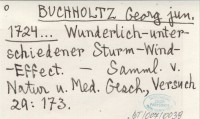 BUCHHOLTZ Georg jun.
1724... Wunderlich-unter-
schiedener Sturm-Wind-
-Effect. — Samml. v.
Natur u. Med. Gesch., Versuch
29: 173.